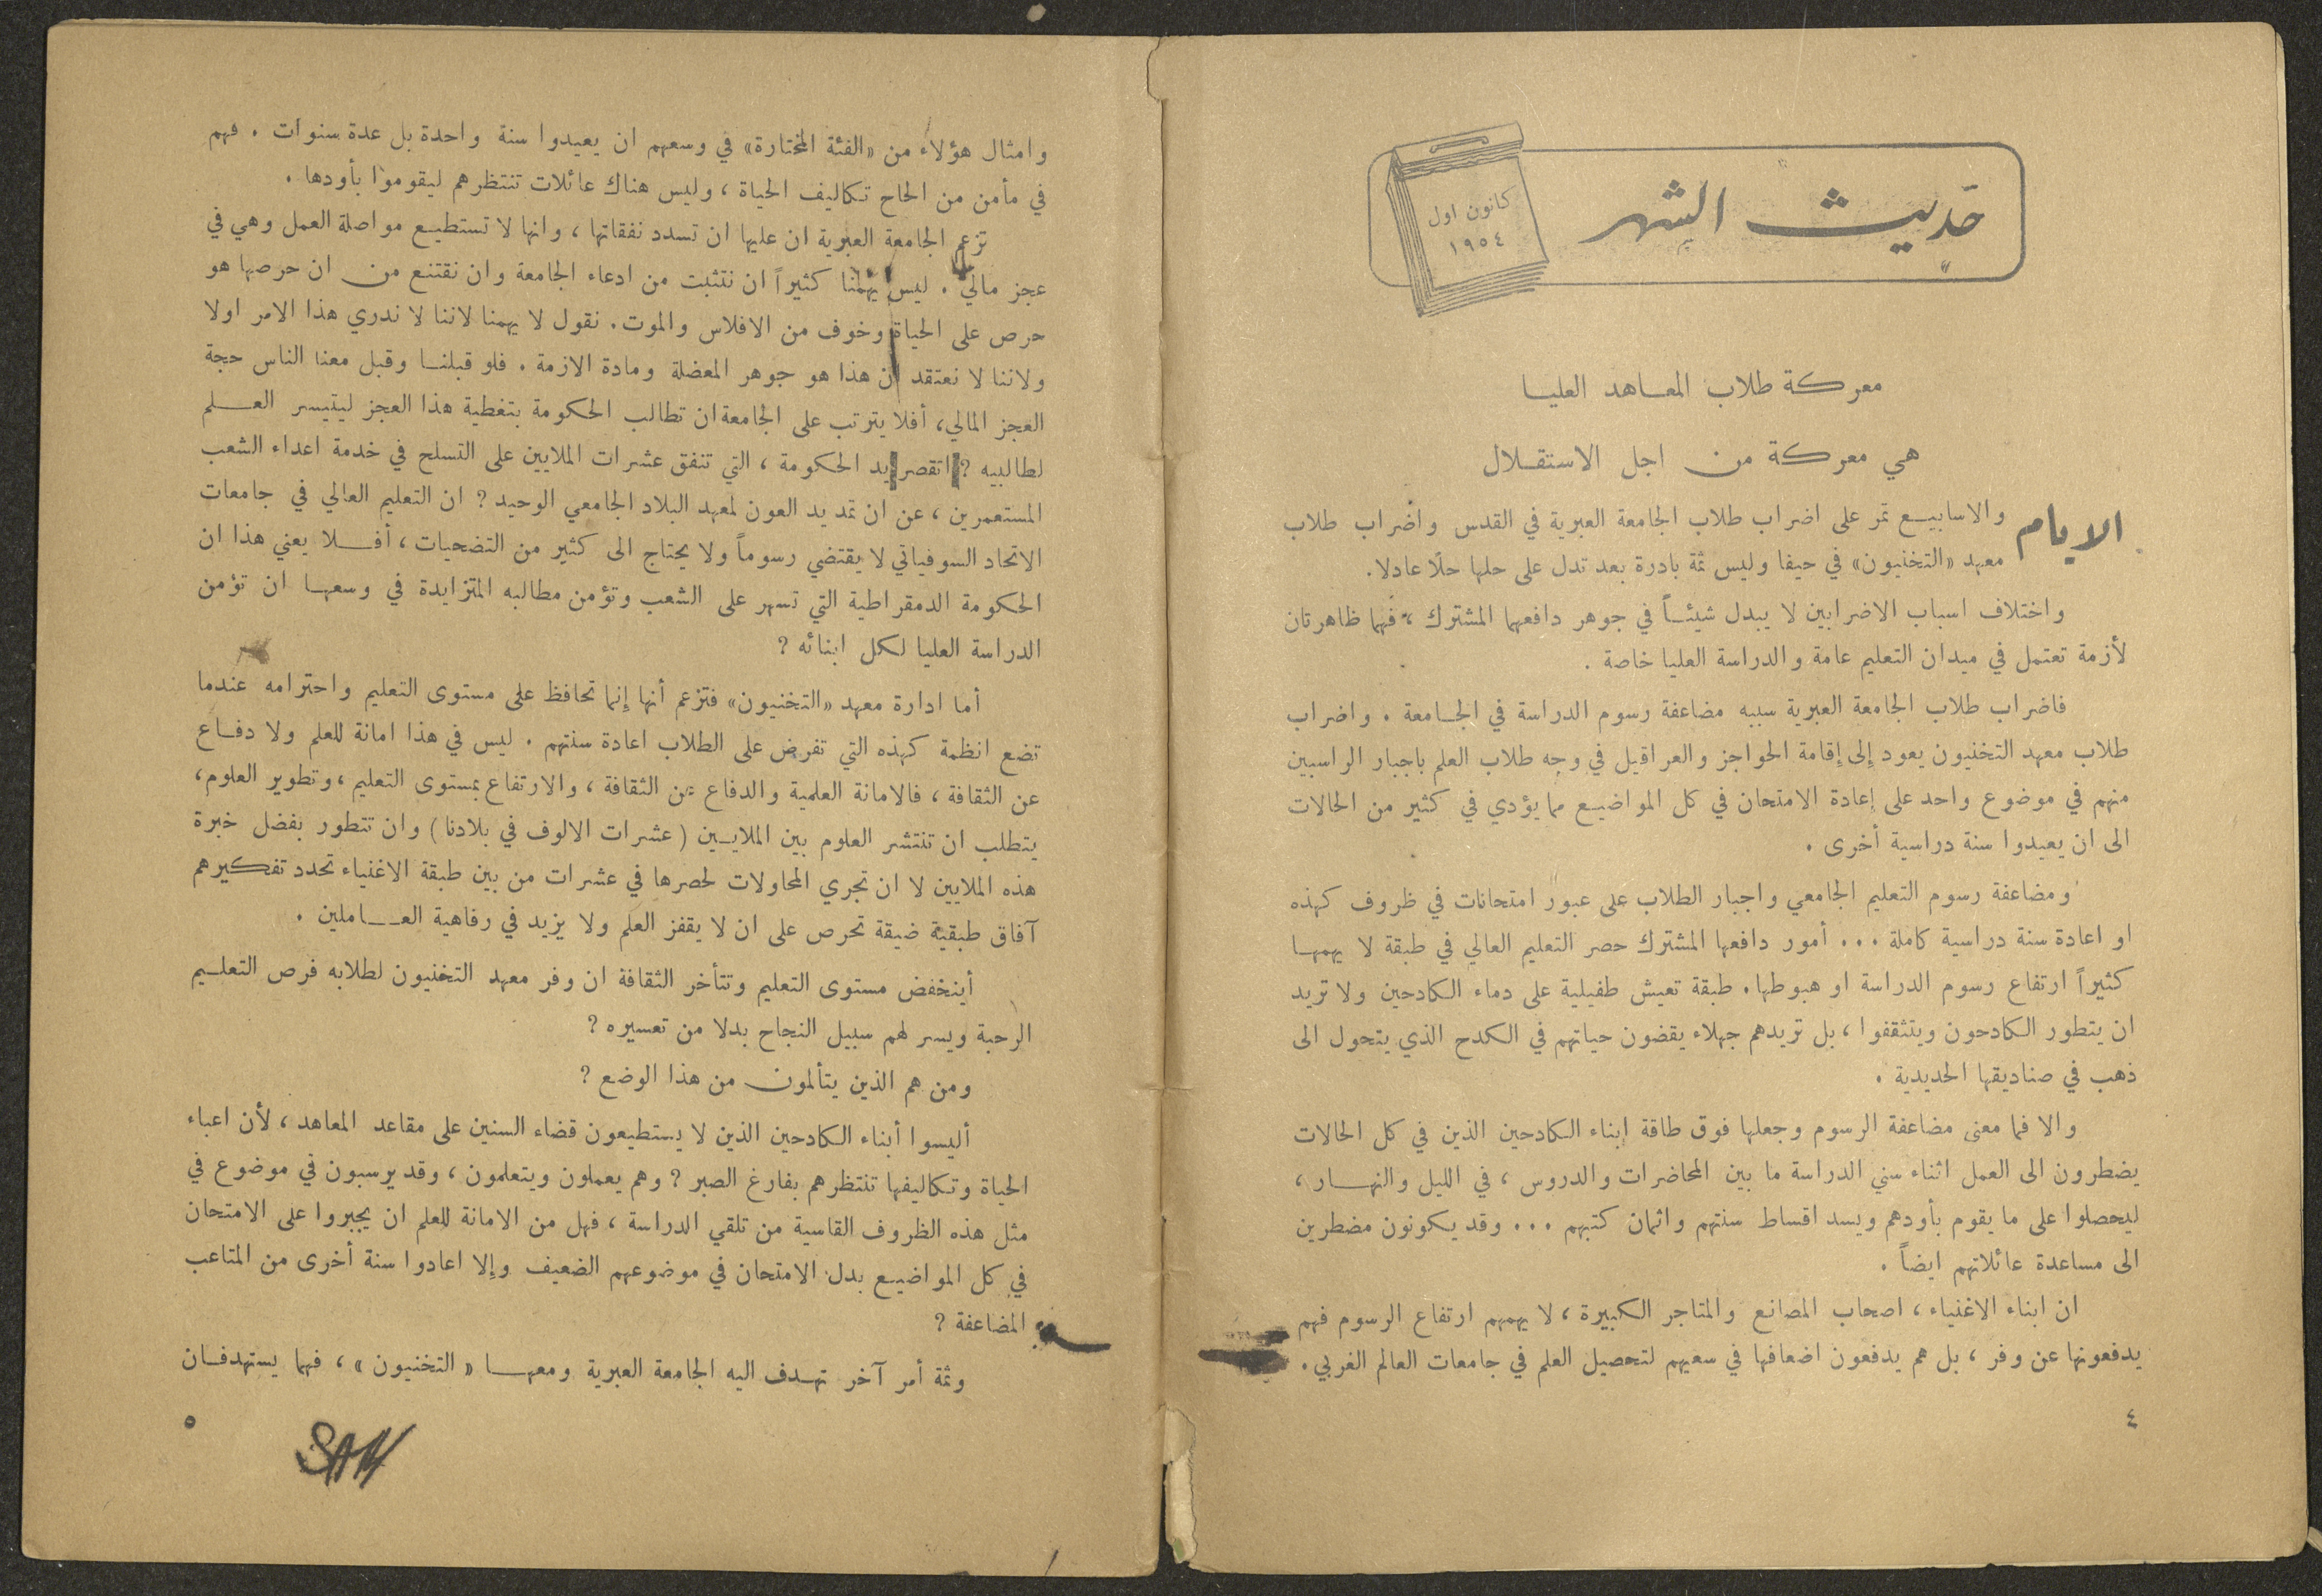 حديث الشهر
كانون اول
١٩٥٤
معركة طلاب المعاهد العليا
هي معركة من اجل الاستقلال
الايام والاسابيع تمر على اضراب طلاب الجامعة العبرية في القدس واضراب طلاب
معهد «التخنيون» في حيفا وليس ثمة بادرة بعد تدل على حلها حلا عادلا.
واختلاف اسباب الاضرابين لا يبدل شيئاً في جوهر دافعهما المشترك ، فهما ظاهرتان
لأزمة تعتمل في ميدان التعليم عامة والدراسة العليا خاصة .
فاضراب طلاب الجامعة العبرية سببه مضاعفة رسوم الدراسة في الجامعة . واضراب
طلاب معهد التخنيون يعود إلى إقامة الحواجز والعراقيل في وجه طلاب العلم باجبار الراسبين
منهم في موضوع واحد على إعادة الامتحان في كل المواضيع مما يؤدي في كثير من الحالات
الى ان يعيدوا سنة دراسية أخرى .
ومضاعفة رسوم التعليم الجامعي واجبار الطلاب على عبور امتحانات في ظروف كهذه
او اعادة سنة دراسية كاملة ... أمور دافعها المشترك حصر التعليم العالي في طبقة لا يهمها
كثيراً ارتفاع رسوم الدراسة او هبوطها. طبقة تعيش طفيلية على دماء الكادحين ولا تريد
ان يتطور الكادحون ويتثقفوا ، بل تريدهم جهلاء يقضون حياتهم في الكدح الذي يتحول الى
ذهب في صناديقها الحديدية .
والا فما معنى مضاعفة الرسوم وجعلها فوق طاقة ابناء الكادحين الذين في كل الحالات
يضطرون الى العمل اثناء سني الدراسة ما بين المحاضرات والدروس ، في الليل والنهار ،
ليحصلوا على ما يقوم بأودهم ويسد اقساط سنتهم واثمان كتبهم ... وقد يكونون مضطرين
الى مساعدة عائلاتهم ايضاً .
ان ابناء الاغنياء ، اصحاب المصانع والمتاجر الكبيرة ، لا يهمهم ارتفاع الرسوم فهم
يدفعونها عن وفر ، بل هم يدفعون اضعافها في سعيهم لتحصيل العلم في جامعات العالم الغربي .
٤
وامثال هؤلاء من «الفئة المختارة» في وسعهم ان يعيدوا سنة واحدة بل عدة سنوات . فهم
في مأمن من الحاح تكاليف الحياة ، وليس هناك عائلات تنتظرهم ليقوموا بأودها .
تزعم الجامعة العبرية ان عليها ان تسدد نفقاتها ، وانها لا تستطيع مواصلة العمل وهي في
عجز مالي . ليس يهمنا كثيراً ان نتثبت من ادعاء الجامعة وان نقتنع من ان حرصها هو
حرص على الحياة وخوف من الافلاس والموت. نقول لا يهمنا لاننا لا ندري هذا الامر اولا
ولاننا لا نعتقد ان هذا هو جوهر المعضلة ومادة الازمة . فلو قبلنا وقبل معنا الناس حجة
العجز المالي، أفلا يترتب على الجامعة ان تطالب الحكومة بتغطية هذا العجز ليتيسر العلم
لطالبيه ? اتقصر يد الحكومة ، التي تنفق عشرات الملايين على التسلح في خدمة اعداء الشعب
المستعمرين ، عن ان تمد يد العون لمعهد البلاد الجامعي الوحيد ? ان التعليم العالي في جامعات
الاتحاد السوفياتي لا يقتضي رسوماً ولا يحتاج الى كثير من التضحيات ، أفلا يعني هذا ان
الحكومة الدمقراطية التي تسهر على الشعب وتؤمن مطالبه المتزايدة في وسعها ان تؤمن
الدراسة العليا لكل ابنائه ?
أما ادارة معهد «التخنيون» فتزعم أنها إنما تحافظ على مستوى التعليم واحترامه عندما
تضع انظمة كهذه التي تفرض على الطلاب اعادة سنتهم . ليس في هذا امانة للعلم ولا دفاع
عن الثقافة ، فالامانة العلمية والدفاع عن الثقافة ، والارتفاع بمستوى التعليم ، وتطوير العلوم،
يتطلب ان تنتشر العلوم بين الملايين ( عشرات الالوف في بلادنا ) وان تتطور بفضل خبرة
هذه الملايين لا ان تجري المحاولات لحصرها في عشرات من بين طبقة الاغنياء تحدد تفكيرهم
آفاق طبقية ضيقة تحرص على ان لا يقفز العلم ولا يزيد في رفاهية العاملين .
أينخفض مستوى التعليم وتتأخر الثقافة ان وفر معهد التخنيون لطلابه فرص التعليم
الرحبة ويسر لهم سبيل النجاح بدلا من تعسيره ?
ومن هم الذين يتألمون من هذا الوضع ?
أليسوا أبناء الكادحين الذين لا يستطيعون قضاء السنين على مقاعد المعاهد ، لأن اعباء
الحياة وتكاليفها تنتظرهم بفارغ الصبر ? وهم يعملون ويتعلمون ، وقد يرسبون في موضوع في
مثل هذه الظروف القاسية من تلقي الدراسة ، فهل من الامانة للعلم ان يجبروا على الامتحان
في كل المواضيع بدل الامتحان في موضوعهم الضعيف وإلا اعادوا سنة أخرى من المتاعب
المضاعفة ?
وثمة أمر آخر تهدف اليه الجامعة العبرية ومعها « التخنيون » ، فهما يستهدفان
٥
SAM